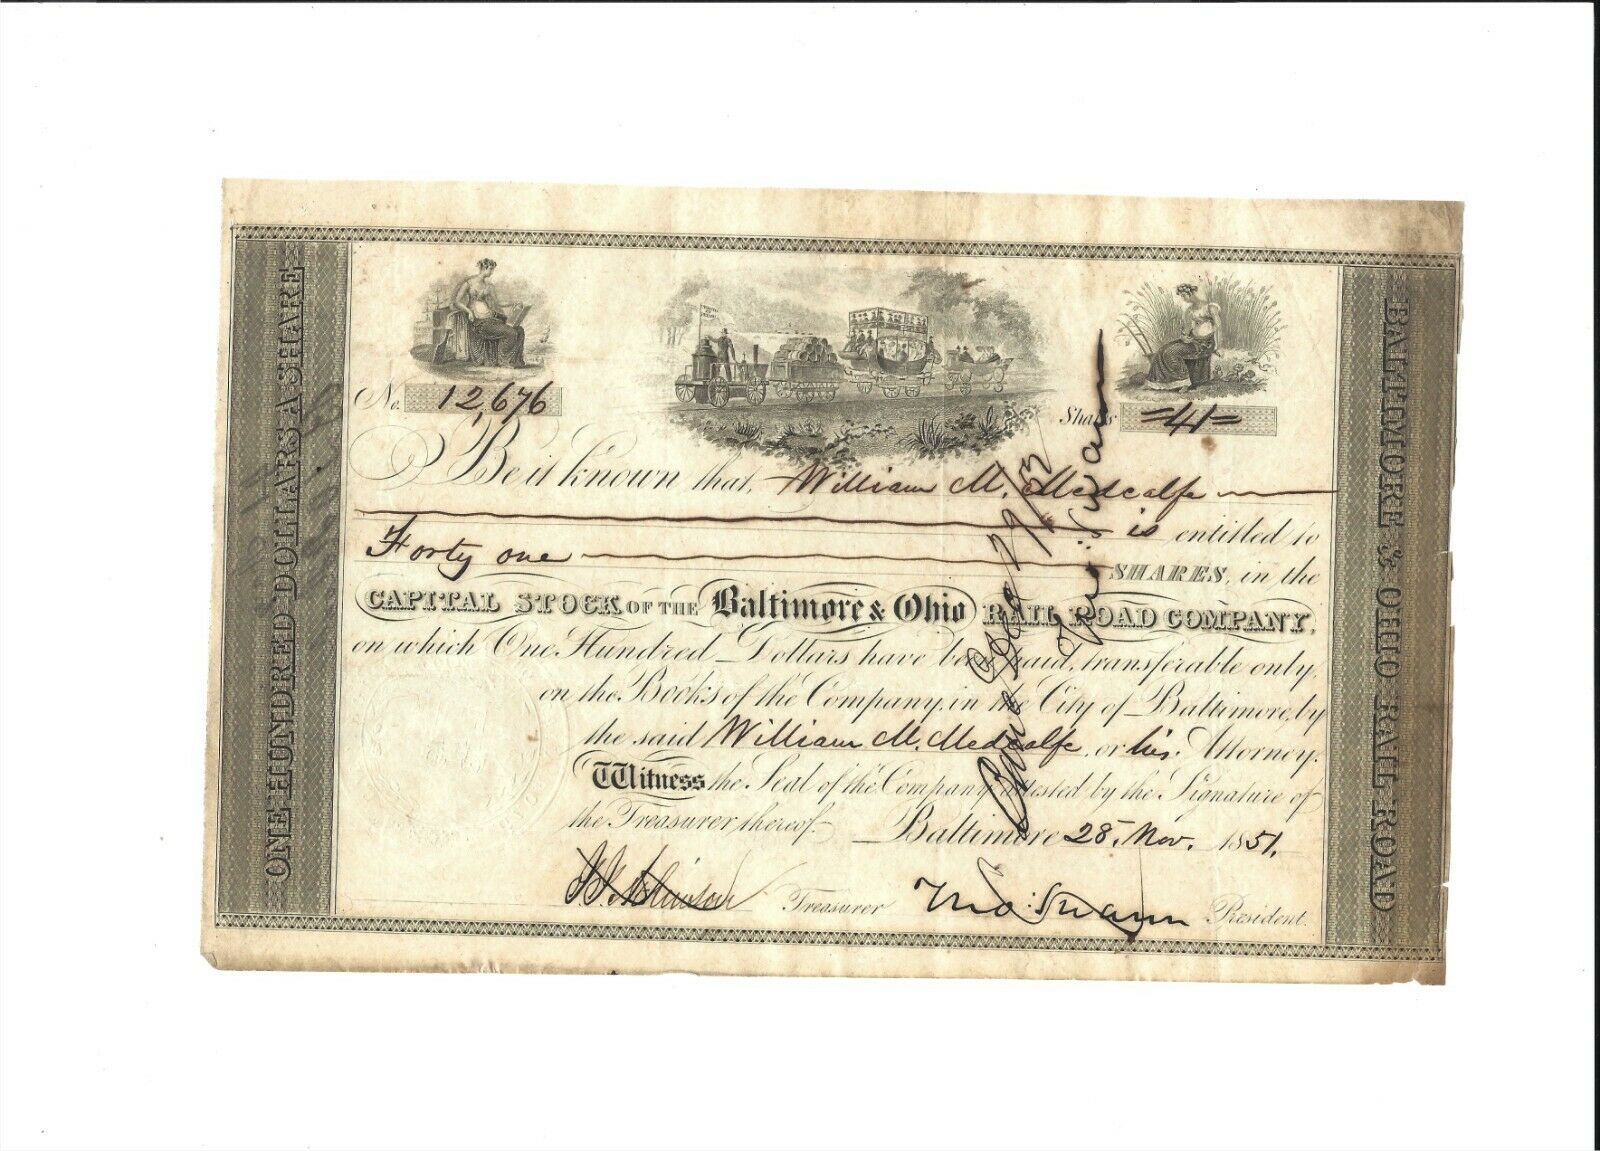 ONE HUNDRED DOLLARS A SHARE
No. 12,676
Shares =41=
Be it known that, William M. Metcalfe
is entitled to
Forty one SHARES, in the
CAPITAL STOCK OF THE Baltimore & Ohio RAIL ROAD COMPANY,
on which One Hundred Dollars have been paid, transferable only
on the Books of the Company, in the City of Baltimore, by
the said William M. Metcalfe or his Attorney.
Witness the Seal of the Company attested by the Signature of
the Treasurer thereof. Baltimore 28. Nov. 1851.
Treasurer Tho: Swann President.
BALTIMORE & OHIO RAIL ROAD
Tho: Swann